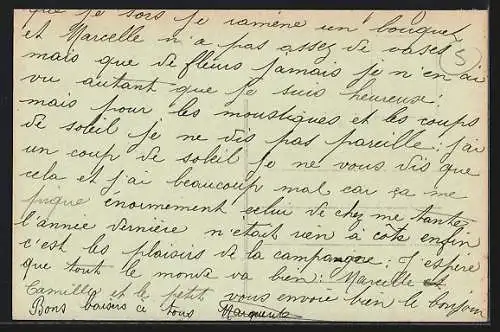 que je sors je ramène un bouquet
et Marcelle n'a pas assez de vases
5
mais que de fleurs jamais je n'en ai
vu autant que je suis heureux!
mais pour les moustiques et les coups
de soleil je ne dis pas pareille: j'ai
un coup de soleil je ne vous dis que
cela et j'ai beaucoup mal car ça me
pique énormement celui de chez me tantes
l'annee dernière n'était rien à côté enfin
c'est les plaisirs de la campagne: J'espère
que tout le monde va bien: Marcelle et
Camille et le petit vous envoie bien le bonjour
Bons baisers à tous Marguerite